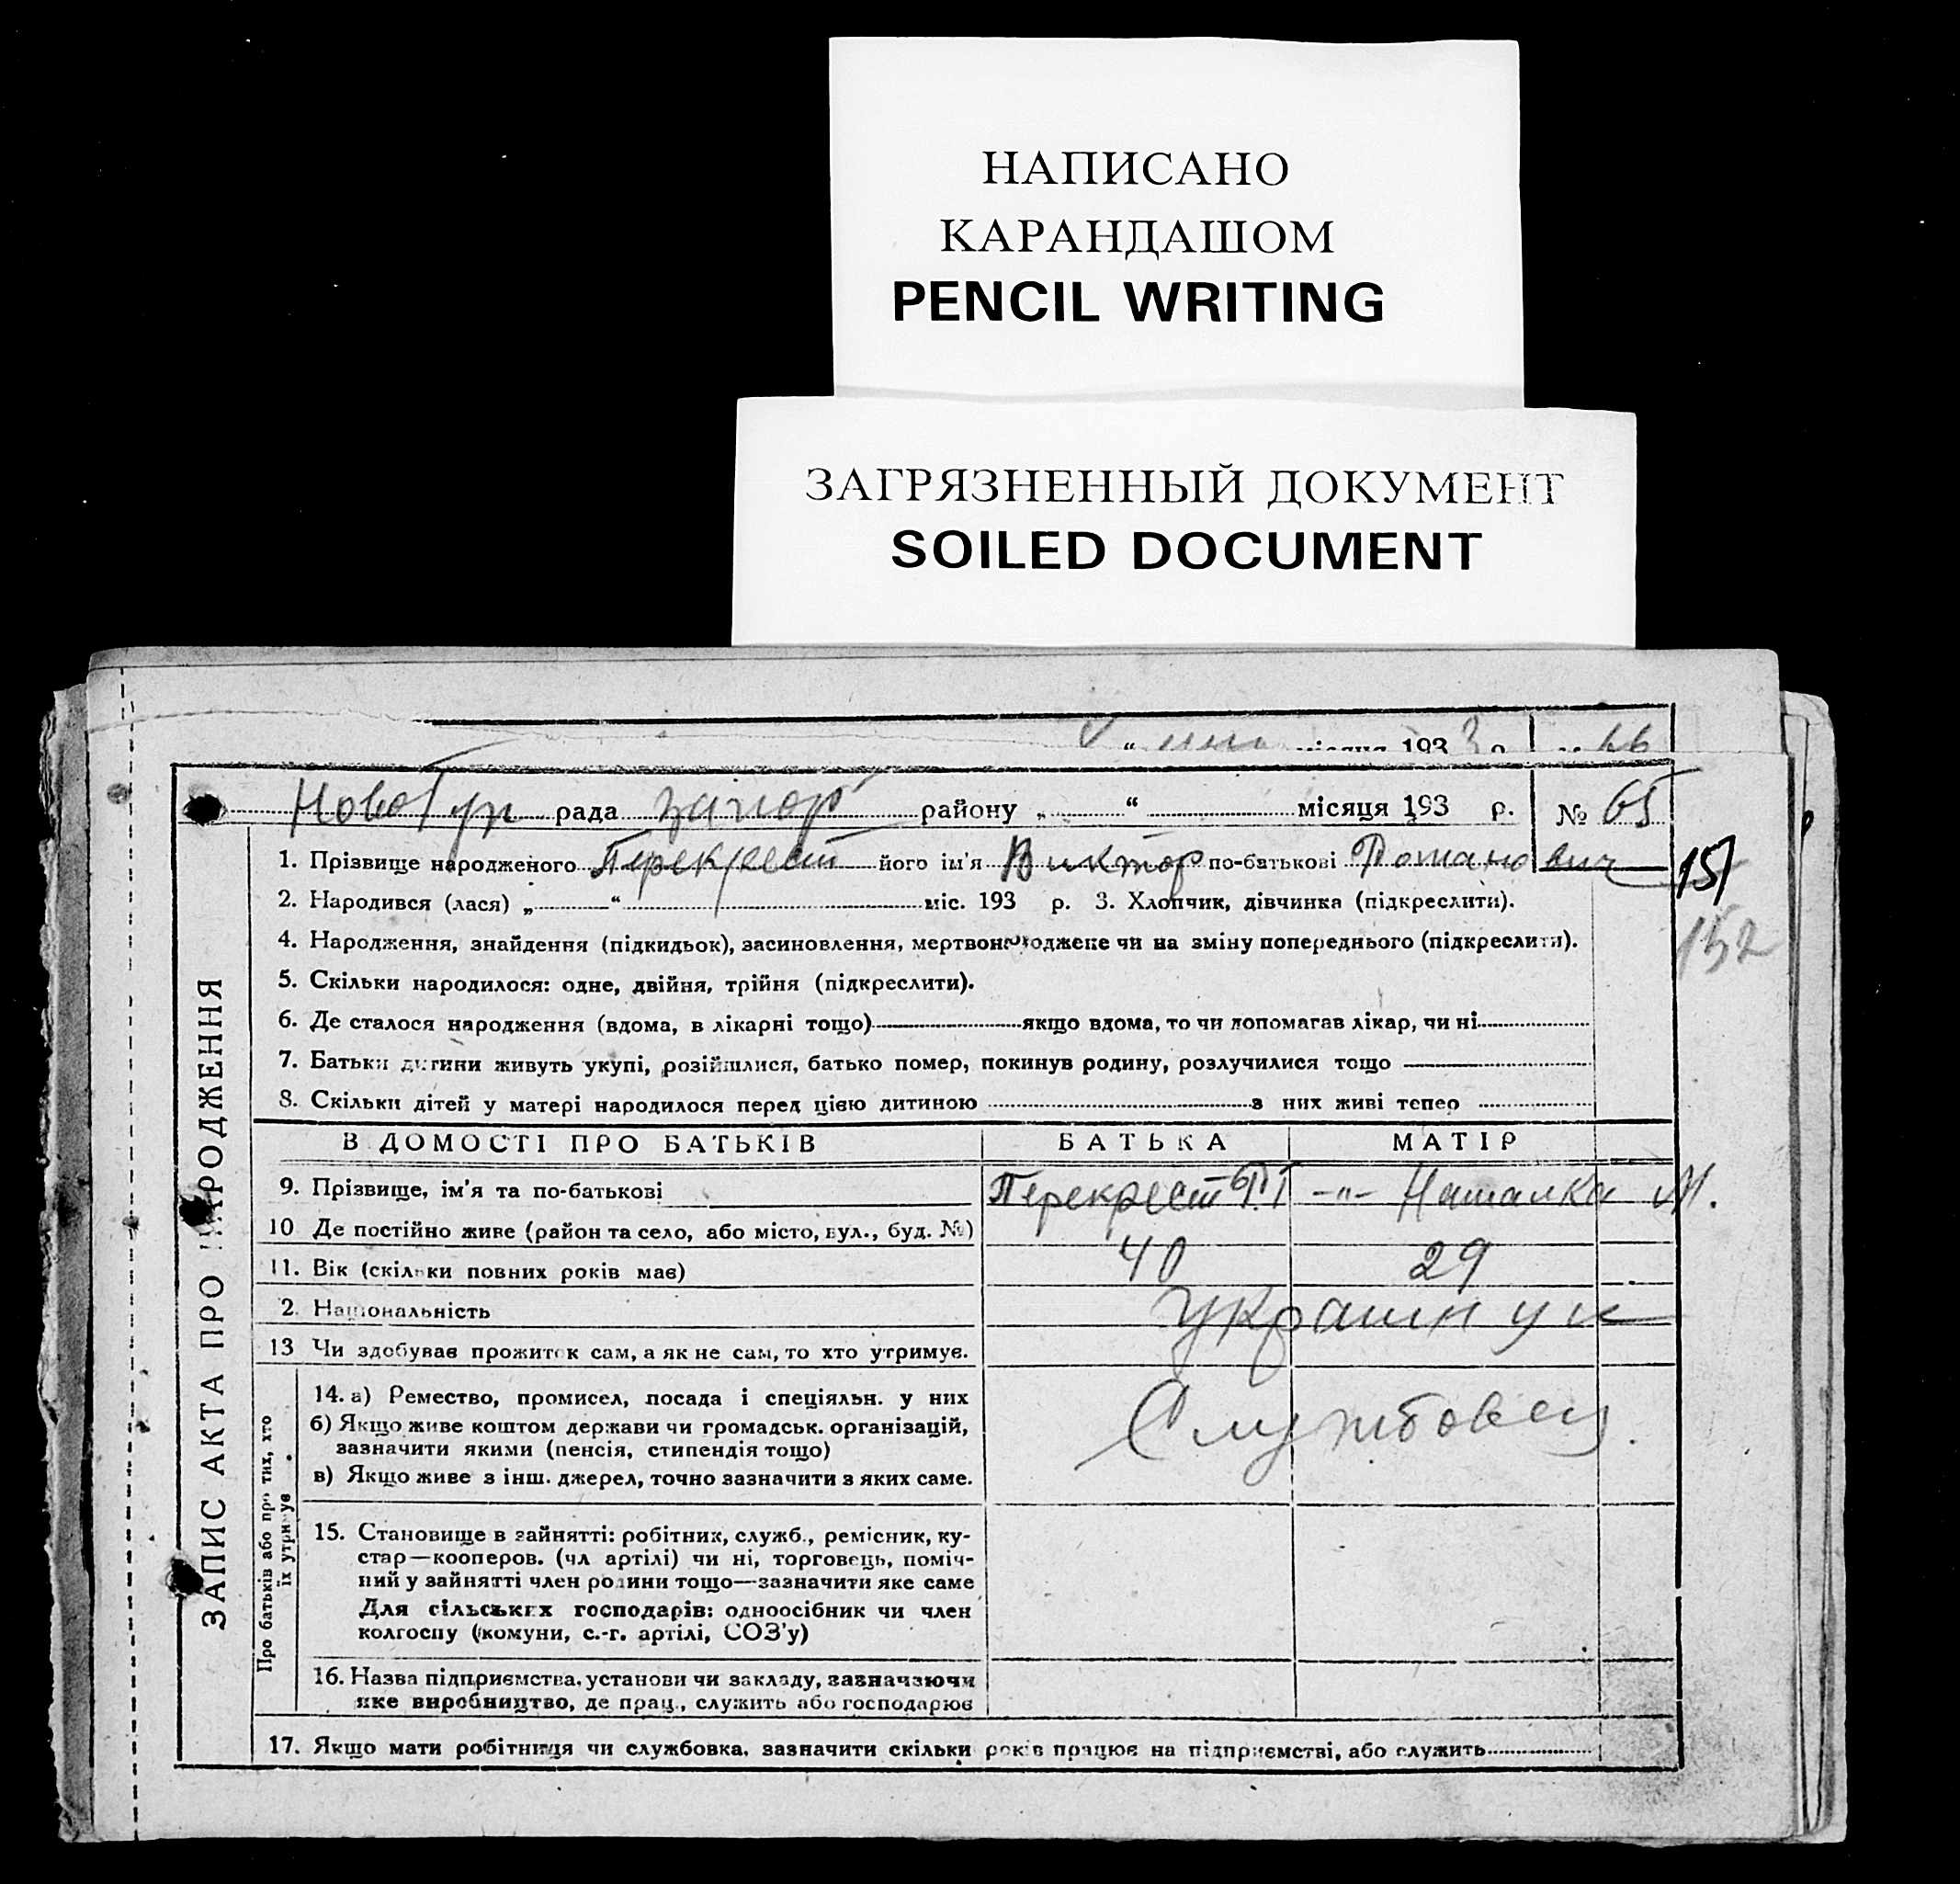 НАПИСАНО
КАРАНДАШОМ
PENCIL WRITING
ЗАГРЯЗНЕННЫЙ ДОКУМЕНТ
SOILED DOCUMENT
“ місяця 193 3 р. № 66
рада запор району „ “ місяця 193 р. № 65
1. Прізвище народженого Перекрест його ім'я Виктор по-батькові Романович
151
2. Народився (лася) „ “ міс. 193 р. 3. Хлопчик, дівчинка (підкреслити).
4. Народження, знайдення (підкидьок), засиновлення, мертвонароджене чи на зміну попереднього (підкреслити).
152
5. Скільки народилося: одне, двійня, трійня (підкреслити).
6. Де сталося народження (вдома, в лікарні тощо) якщо вдома, то чи допомагав лікар, чи ні
7. Батьки дитини живуть укупі, розійшлися, батько помер, покинув родину, розлучилися тощо
8. Скільки дітей у матері народилося перед цією дитиною з них живі тепер
ЗАПИС АКТА ПРО НАРОДЖЕННЯ
ВІДОМОСТІ ПРО БАТЬКІВ БАТЬКА МАТІР
9. Прізвище, ім'я та по-батькові Перекрест -"- Наталка М.
10 Де постійно живе (район та село, або місто, вул., буд. №)
11. Вік (скільки повних років має) 40 29
2. Національність
13 Чи здобуває прожиток сам, а як не сам, то хто утримує.
Про батьків або про тих, хто
їх утримує
14. а) Ремество, промисел, посада і спеціяльн. у них
б) Якщо живе коштом держави чи громадськ. організацій,
зазначити якими (пенсія, стипендія тощо)
в) Якщо живе з інш. джерел, точно зазначити з яких саме.
Службовец.
15. Становище в зайнятті: робітник, служб., ремісник, ку-
стар—кооперов. (чл артілі) чи ні, торговець, поміч-
ний у зайнятті член родини тощо—зазначити яке саме
Для сільських господарів: одноосібник чи член
колгоспу (комуни, с.-г. артілі, СОЗ'у)
16. Назва підприємства, установи чи закладу, зазначаючи
яке виробництво, де прац., служить або господарює
17. Якщо мати робітниця чи службовка, зазначити скільки років працює на підприємстві, або служить